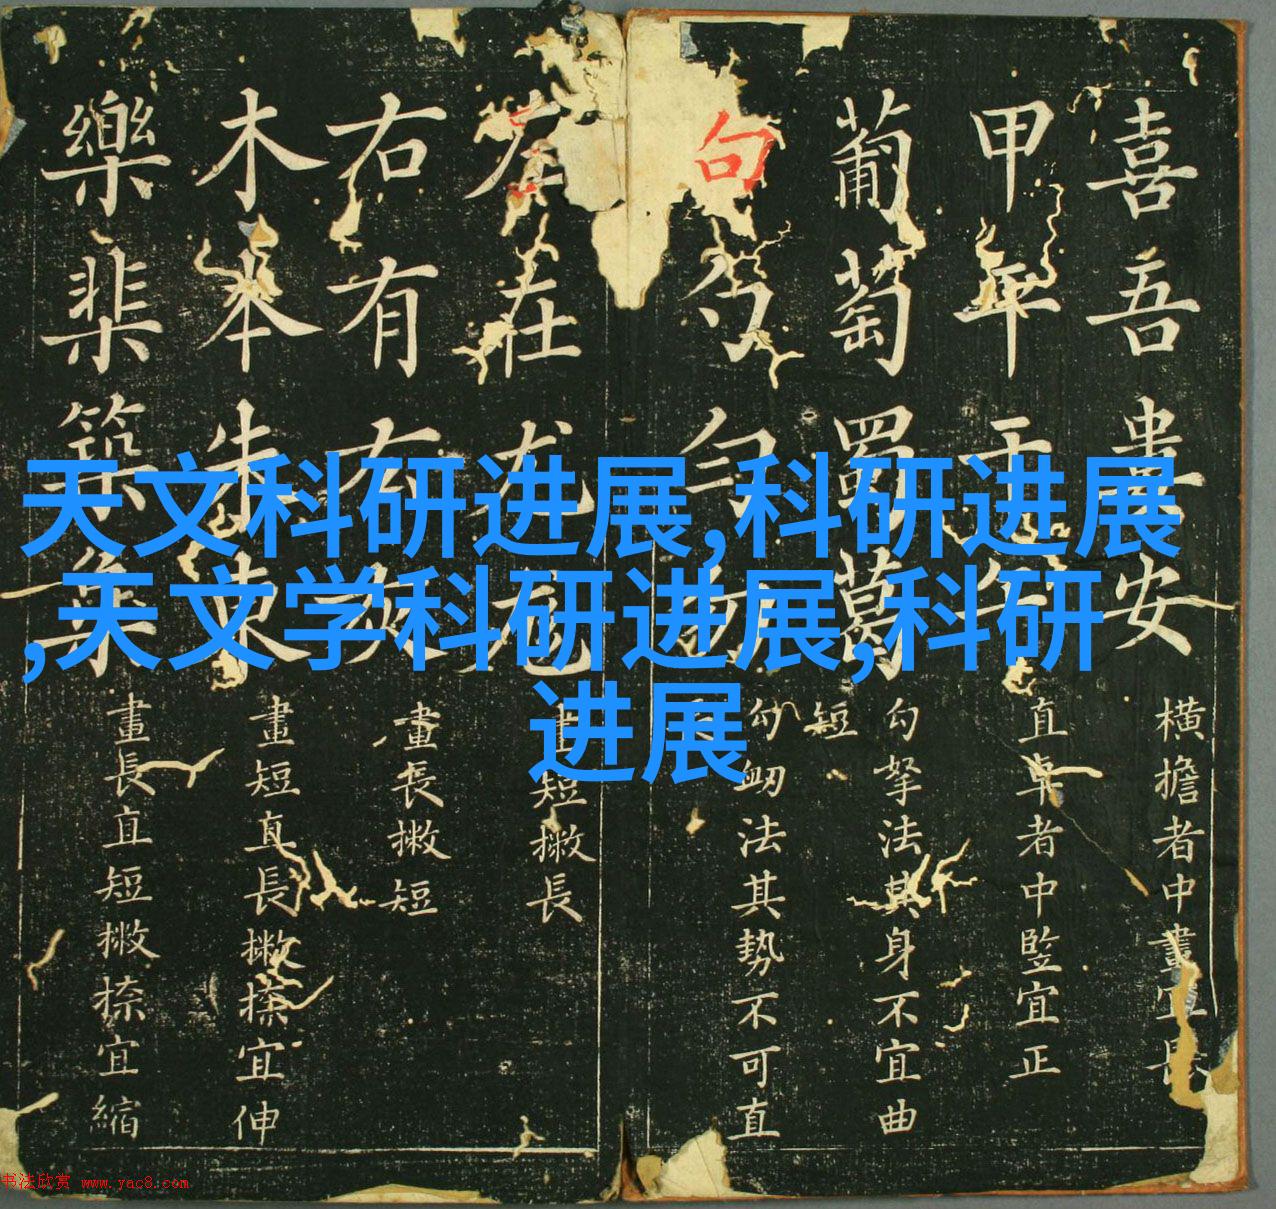 喜吾婁安
横擔者中畫宜長
甲平干午
直卓者中竪宜正
葡萄蜀葛
勾拏法其身不宜曲
短
句勺匀勿
勾劒法其勢不可直
左在尤尨
畫短撇長
右有
畫長撇短
木本朱東
畫短直長撇捺宜伸
樂棐築集
畫長直短撇捺宜縮
天文科研进展,科研进展
,天文学科研进展,科研
进展
书法欣赏 www.yac8.com